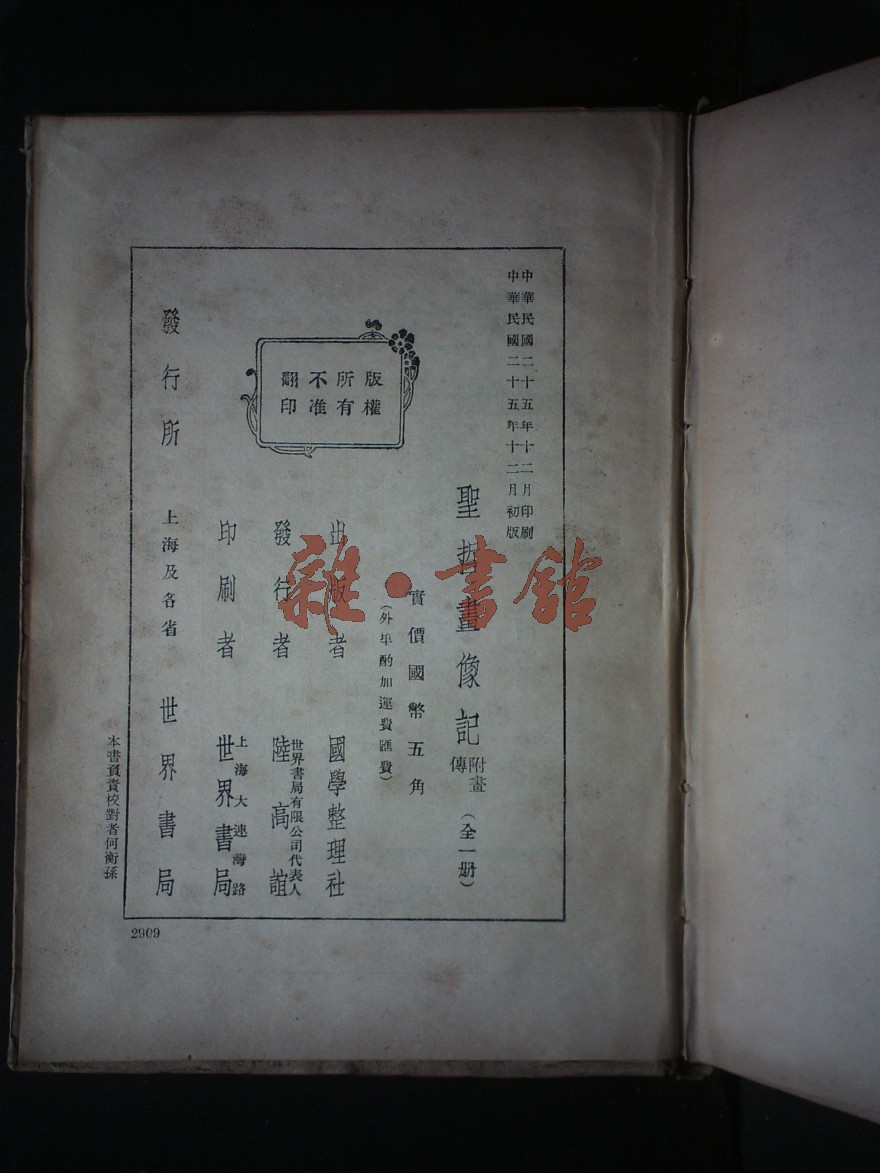 中華民國二十五年十二月印刷
中華民國二十五年十二月初版
聖哲畫像記 附畫傳 (全一册)
實價國幣五角
(外埠酌加運費匯費)
版權所有
不准翻印
出版者 國學整理社
發行者 世界書局有限公司代表人 陸高誼
印刷者 上海大連灣路 世界書局
發行所 上海及各省 世界書局
本書負責校對者何衡孫
2909
雜·書館